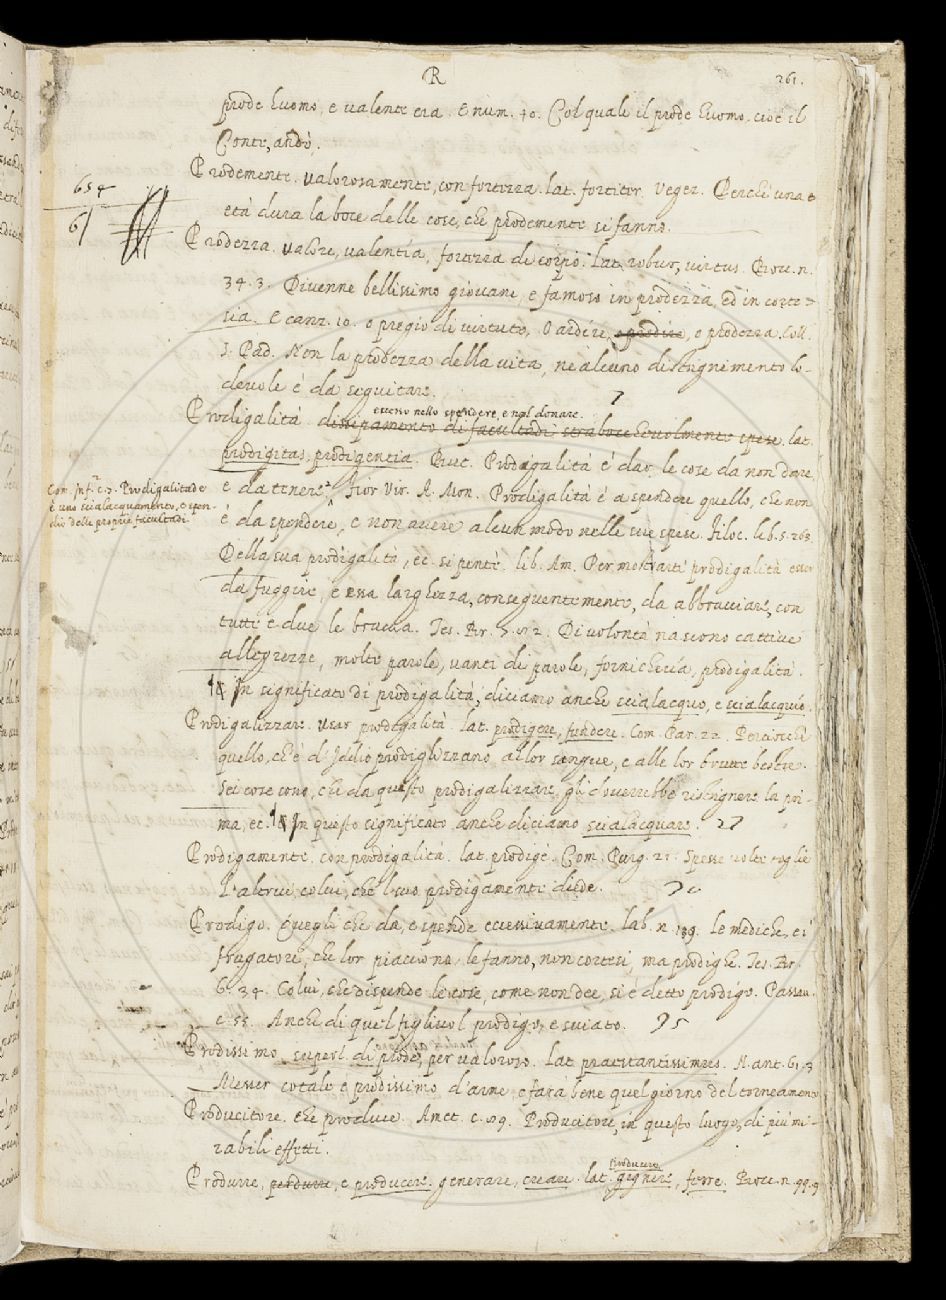 R
261.
prode huomo, e valente era. E num. 40. Col quale il prode huomo, cioè il
Conte, andò.
Prodemente. Valorosamente, con fortezza. lat. fortiter. Veger. Perchè una
età dura la boce delle cose, che prodemente si fanno.
654
61
Prodezza. Valore, valentia, fortezza di corpo. lat. robur, virtus. Nov. n.
34. 3. Divenne bellissimo giovane, e famoso in prodezza, ed in corte=
sia. E canz. 10. o pregio di virtuto, O ardire, o prodire, o prodezza. Coll.
S. Pad. Non la prodezza della vita, ne alcuno distrignemento lo-
devole è da seguitare.
eccesso nello spendere, e nel donare.
Prodigalità. dissipamento di facultadi straboccheuolmente spese. lat.
prodigitas, prodigentia. Prodigalità è dar le cose da non dare,
e da tenere. Fior Vir. A. Mon. Prodigalità è a spendere quello, che non
Com. Inf. c. 7. Prodigalitade
è uno scialacquamento, e spen-
dio delle proprie facultadi.
è da spendere, e non avere alcun modo nelle sue spese. Filoc. lib. 5. 263.
Della sua prodigalità, ec. si pente. lib. Am. Per mostrarti prodigalità esser
da fuggire, e essa larghezza, conseguentemente, da abbracciare, con
tutte e due le braccia. Tes. Br. 7. Di volontà nascono cattive
allegrezze, molte parole, vanti di parole, fornicheria, prodigalità.
In significato di prodigalità, diciamo anche scialacquo, e scialacquío.
Prodigalizzare. Usar prodigalità. lat. prodigere, fundere. Com. Par. 22. Perciocchè
quello, ch'è d'Idilio prodiglizzano al lor sangue, e alle lor brutte bestie.
Sei cose sono, che da questo prodigalizzare gli dovrebbe ristignere la pri-
ma, ec. In questo significato anche diciamo scialacquare.
Prodigamente. con prodigalità. lat. prodigè. Com. Purg. 21. Spesse volte toglie
l'altrui, colui, che'l suo prodigamente diede.
Prodigo. Quegli che dà, e spende eccessivamente. lab. n. 189. Le mediche, ei
frugatori, che lor piacciono, le fanno, non cortesi, ma prodighe. Tes. Br.
6. 34. Colui, che dispende le cose, come non dee, si è detto prodigo. Passau.
c. 55. Anche di quel figliuol prodigo, e suiato.
Prodissimo. superl. di prode, per valoroso. lat. praestantissimus. N. ant. 61. 3
Messer cotale è prodissimo d'arme, e farà bene quel giorno del torneamento
Producitore. che produce. Amet. c. 99. Producitore, in questo luogo, di più mi-
rabili effetti.
producere,
Produrre, perdurre, e producere. generare, creare. lat. gignere, ferre. Bocc. n. 99. 9